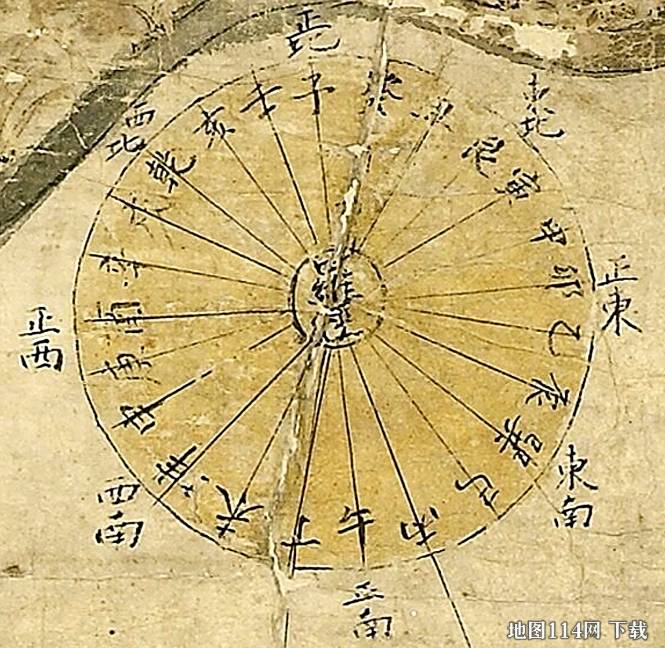 正北
東北
正東
東南
正南
西南
正西
西北
子
癸
丑
艮
寅
甲
卯
乙
辰
巽
巳
丙
午
丁
未
坤
申
庚
酉
辛
戌
乾
亥
壬
羅經
地图114网 下载